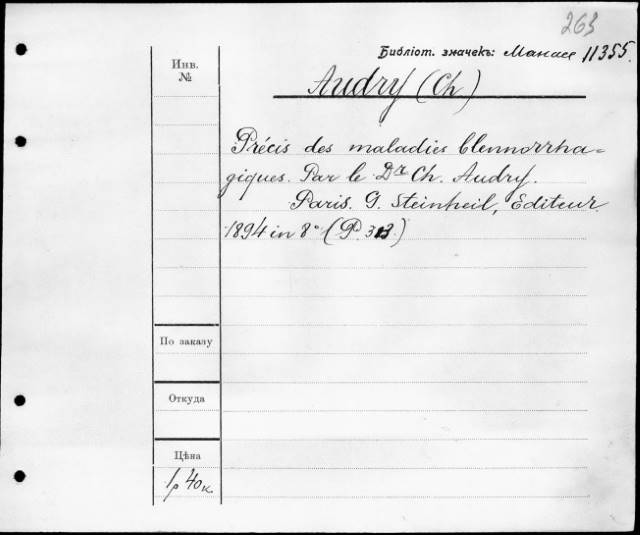 263
Библіот. значекъ: Манасс 11355.
Инв.
№
Audry (Ch)
Précis des maladies blennorrha-
giques. Par le Dr Ch. Audry.
Paris. G. Steinheil, Editeur.
1894 in 8° (P. 313.)
По заказу
Откуда
Цѣна
1р 40к